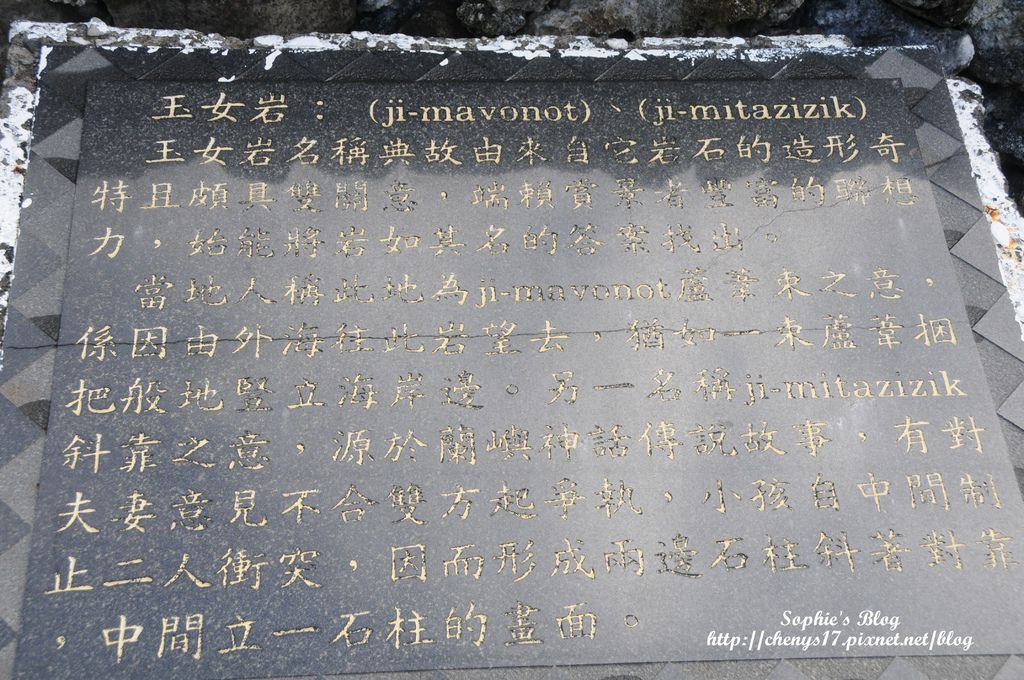 玉女岩：(ji-mavonot)、(ji-mitazizik)
玉女岩名稱典故由來自它岩石的造形奇
特且頗具雙關意，端賴賞景者豐富的聯想
力，始能將岩如其名的答案找出。
當地人稱此地為ji-mavonot蘆葦束之意，
係因由外海往此岩望去，猶如一束蘆葦捆
把般地豎立海岸邊。另一名稱ji-mitazizik
斜靠之意，源於蘭嶼神話傳說故事，有對
夫妻意見不合雙方起爭執，小孩自中間制
止二人衝突，因而形成兩邊石柱斜著對靠
，中間立一石柱的畫面。
Sophie's Blog
http://chenys17.pixnet.net/blog